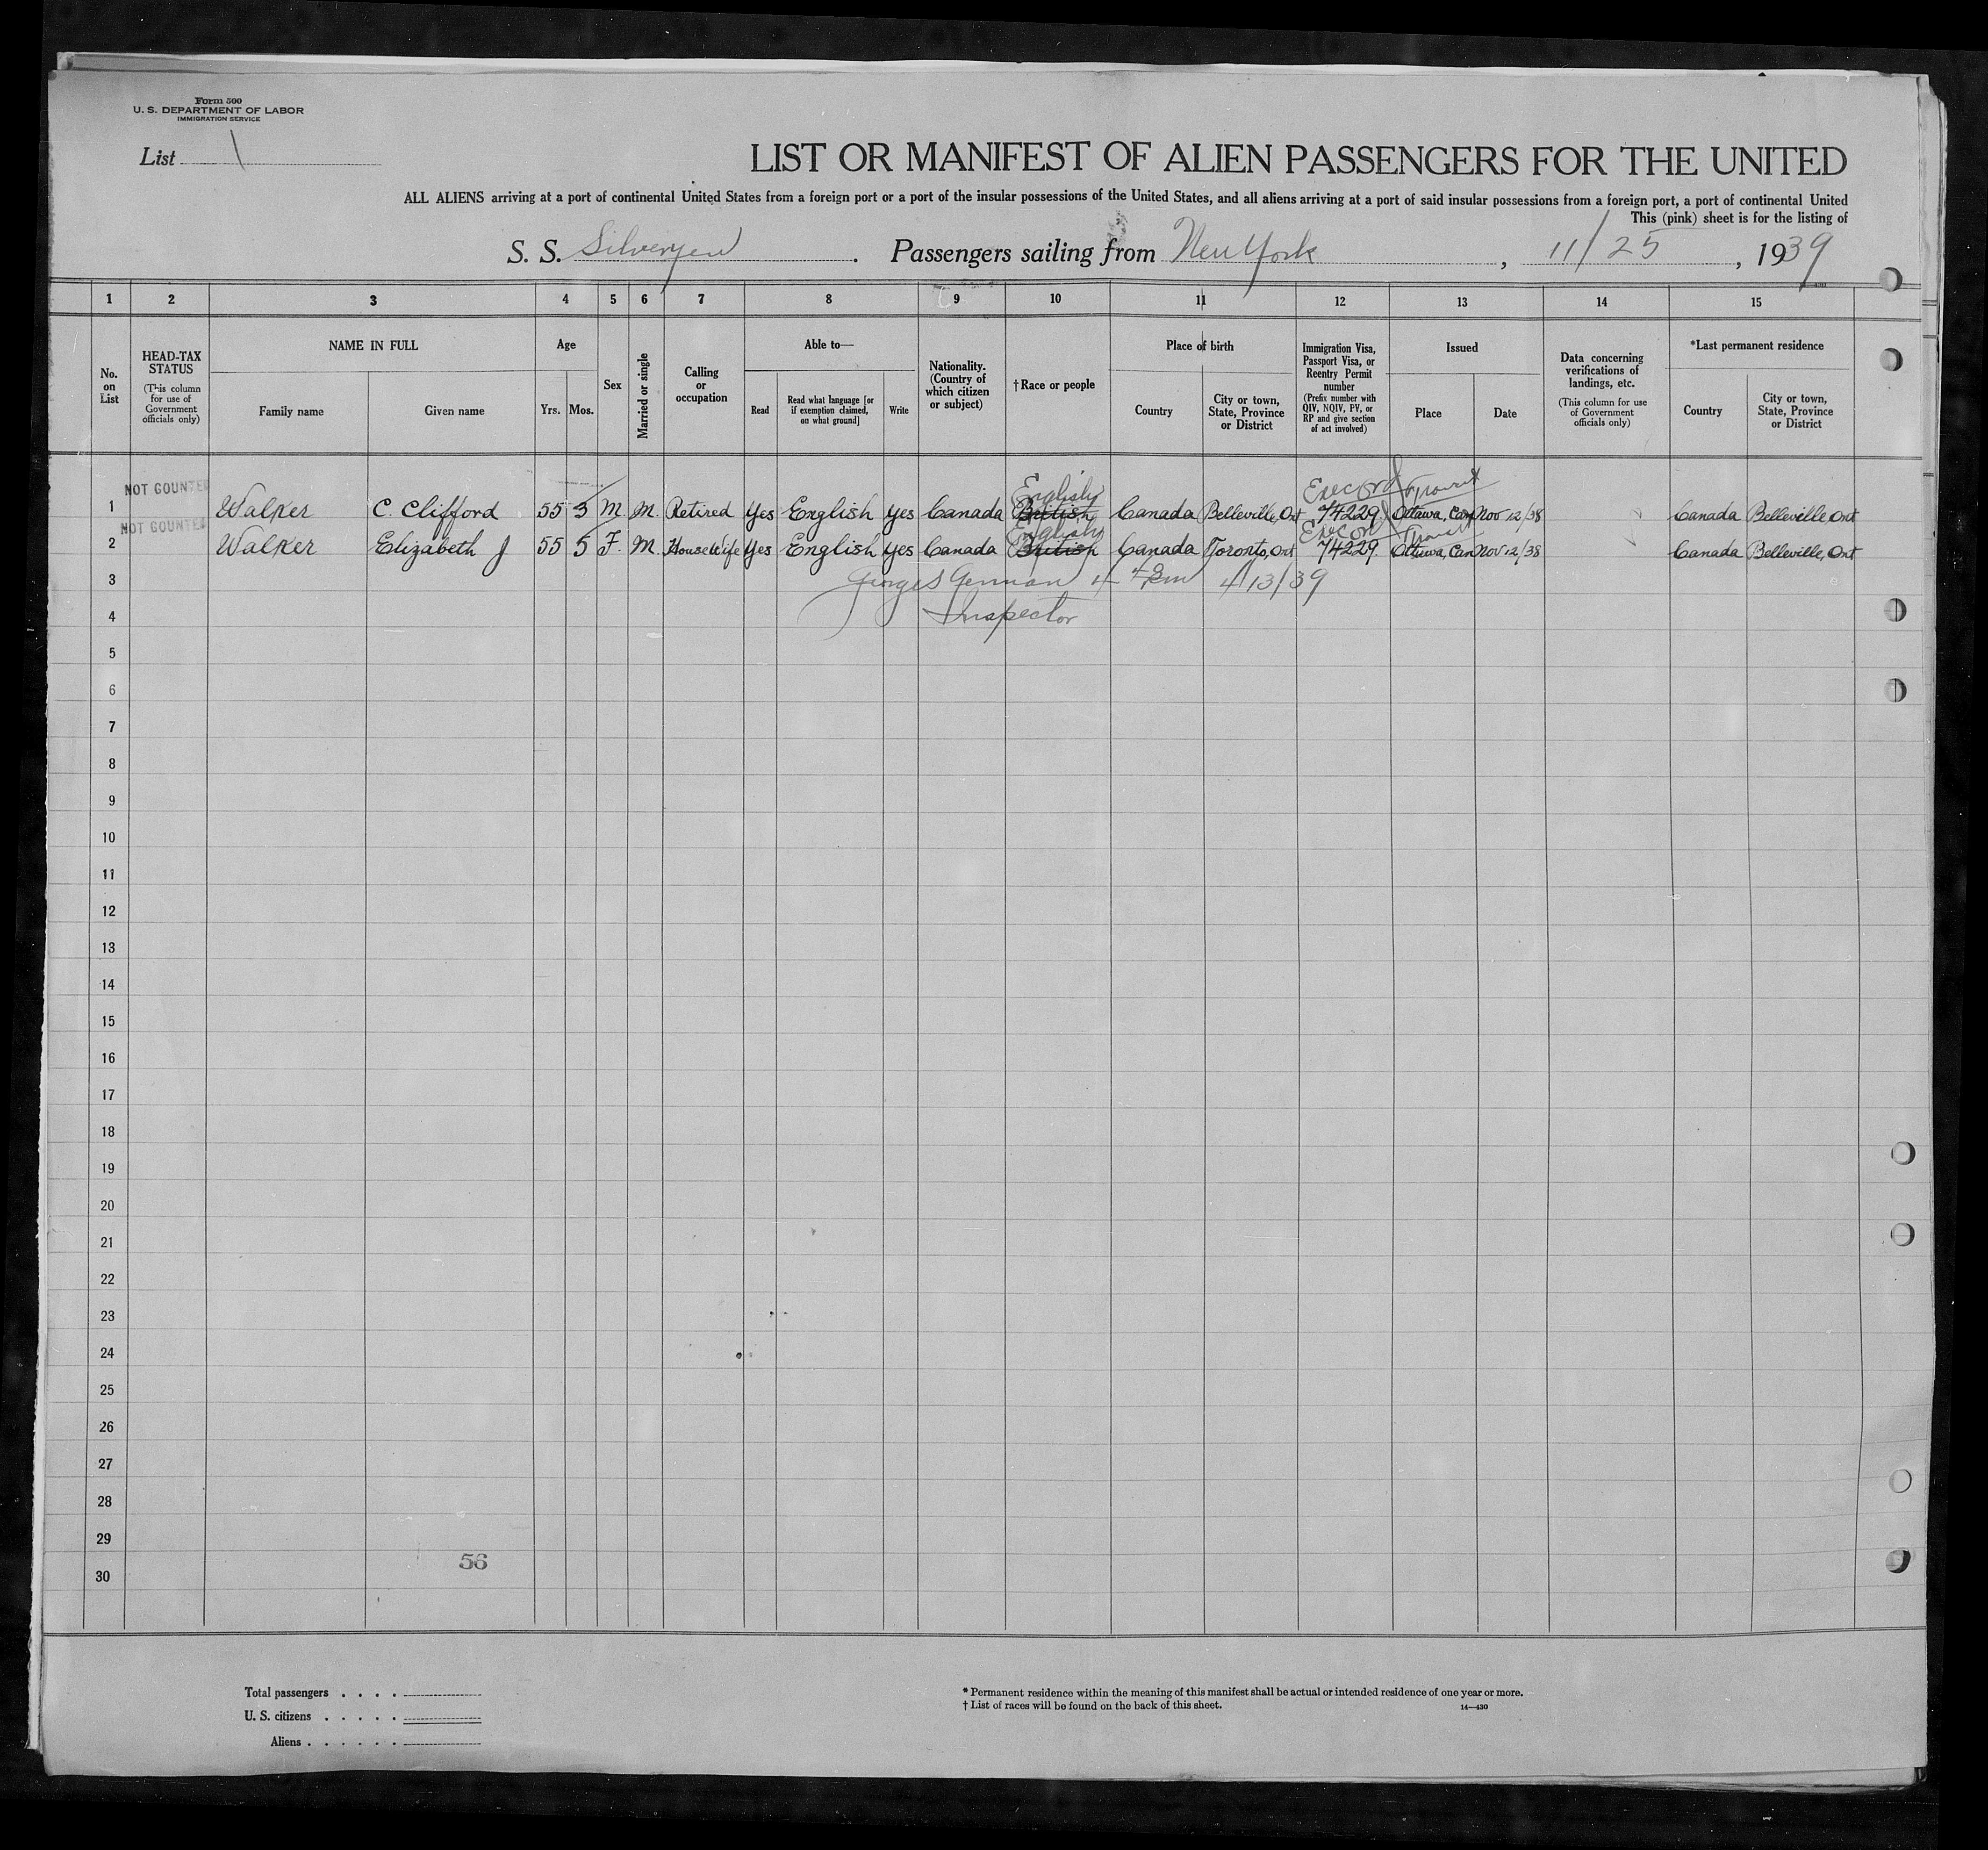 Form 500
U. S. DEPARTMENT OF LABOR
IMMIGRATION SERVICE
List 1
LIST OR MANIFEST OF ALIEN PASSENGERS FOR THE UNITED
ALL ALIENS arriving at a port of continental United States from a foreign port or a port of the insular possessions of the United States, and all aliens arriving at a port of said insular possessions from a foreign port, a port of continental United
This (pink) sheet is for the listing of
S. S. Silveryew . Passengers sailing from New York , 11/25 , 1939
1 2 3 4 5 6 7 8 9 10 11 12 13 14 15
No. on List
HEAD-TAX STATUS
(This column for use of Government officials only)
NAME IN FULL
Family name Given name
Age
Yrs. Mos.
Sex
Married or single
Calling or occupation
Able to—
Read
Read what language [or if exemption claimed, on what ground]
Write
Nationality. (Country of which citizen or subject)
†Race or people
Place of birth
Country
City or town, State, Province or District
Immigration Visa, Passport Visa, or Reentry Permit number
(Prefix number with QIV, NQIV, PV, or RP and give section of act involved)
Issued
Place Date
Data concerning verifications of landings, etc.
(This column for use of Government officials only)
*Last permanent residence
Country
City or town, State, Province or District
NOT COUNTED
English Exec Ord Transit
1 Walker C. Clifford 55 3 M. M. Retired Yes English Yes Canada British Canada Belleville, Ont 74229 Ottawa, Can Nov 12/38 Canada Belleville Ont
NOT COUNTED
English Exec Ord Transit
2 Walker Elizabeth J 55 5 F. M. HouseWife Yes English Yes Canada British Canada Toronto, Ont 74229. Ottawa, Can Nov 12/38 Canada Belleville, Ont
3 German 4/13/39
4 Inspector
5
6
7
8
9
10
11
12
13
14
15
16
17
18
19
20
21
22
23
24
25
26
27
28
29
56
30
Total passengers . . . .
U. S. citizens . . . . .
Aliens . . . . . .
* Permanent residence within the meaning of this manifest shall be actual or intended residence of one year or more.
† List of races will be found on the back of this sheet.
14—430